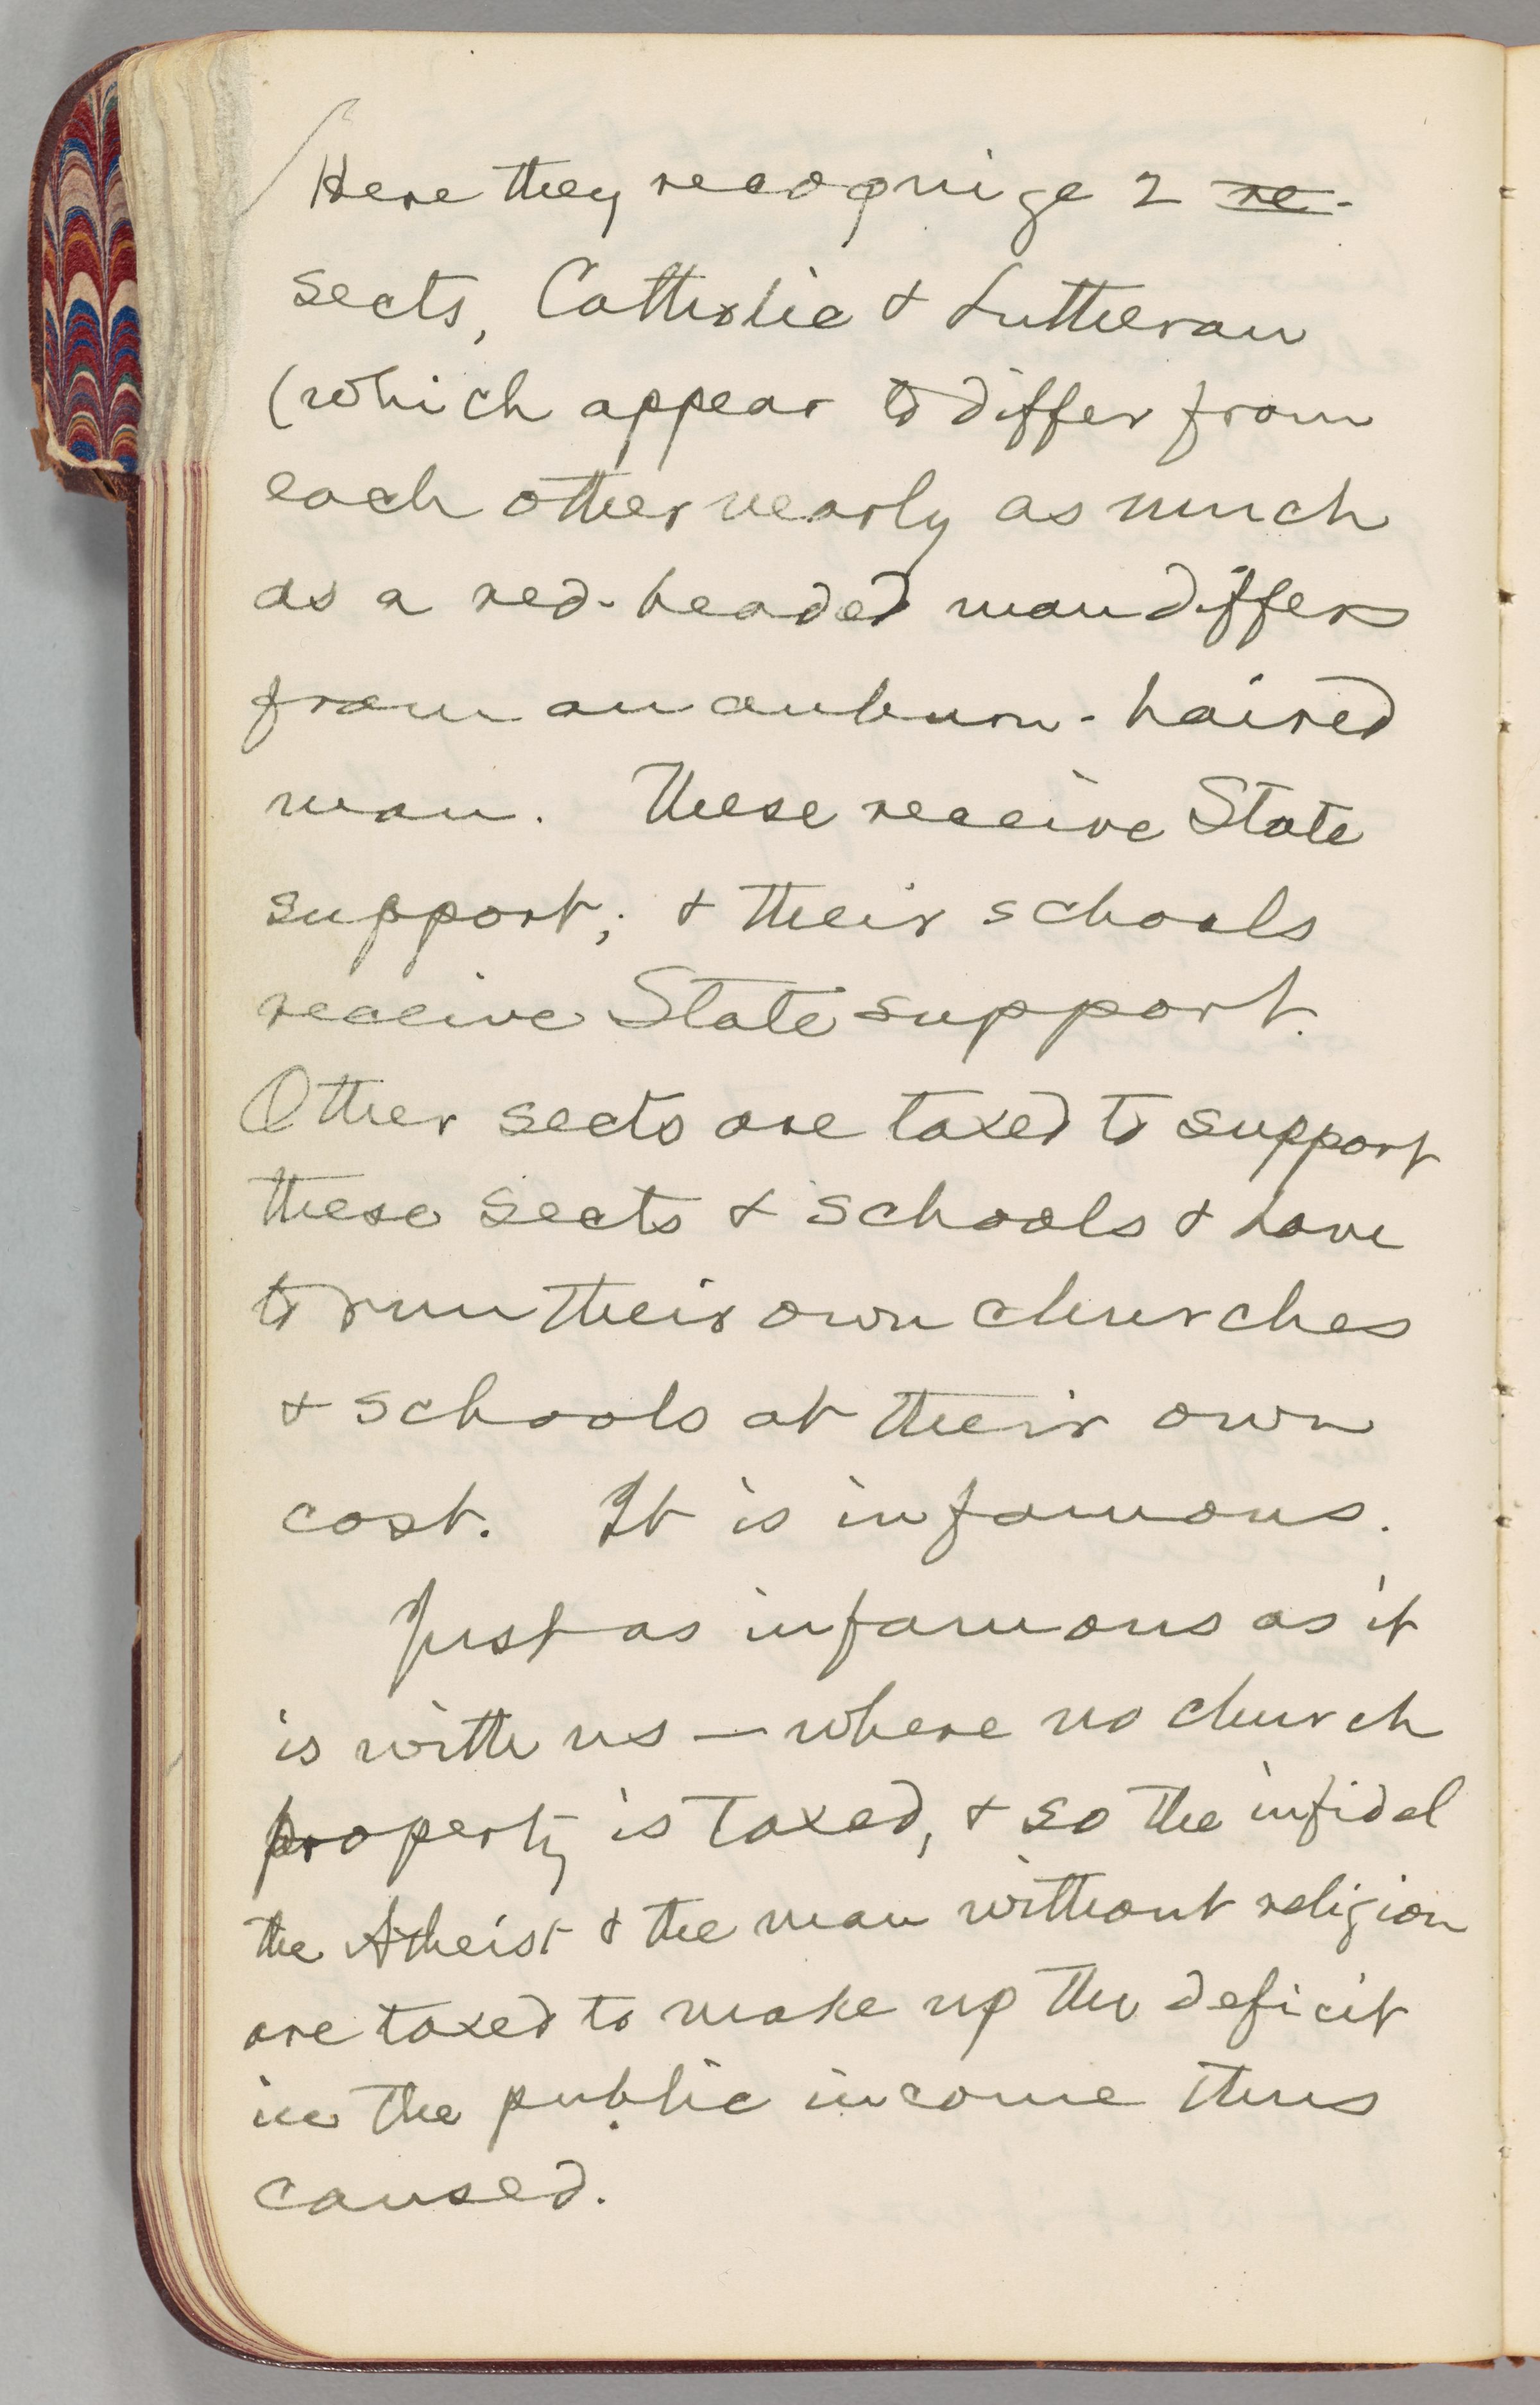 Here they recognize 2 re-
sects, Catholic & Lutheran
(which appear to differ from
each other nearly as much
as a red-headed man differs
from an auburn-haired
man. These receive State
support; & their schools
receive State support.
Other sects are taxed to support
these sects & schools & have
to run their own churches
& schools at their own
cost. It is infamous.
Just as infamous as it
is with us — where no church
property is taxed, & so the infidel
the Atheist & the man without religion
are taxed to make up the deficit
in the public income thus
caused.